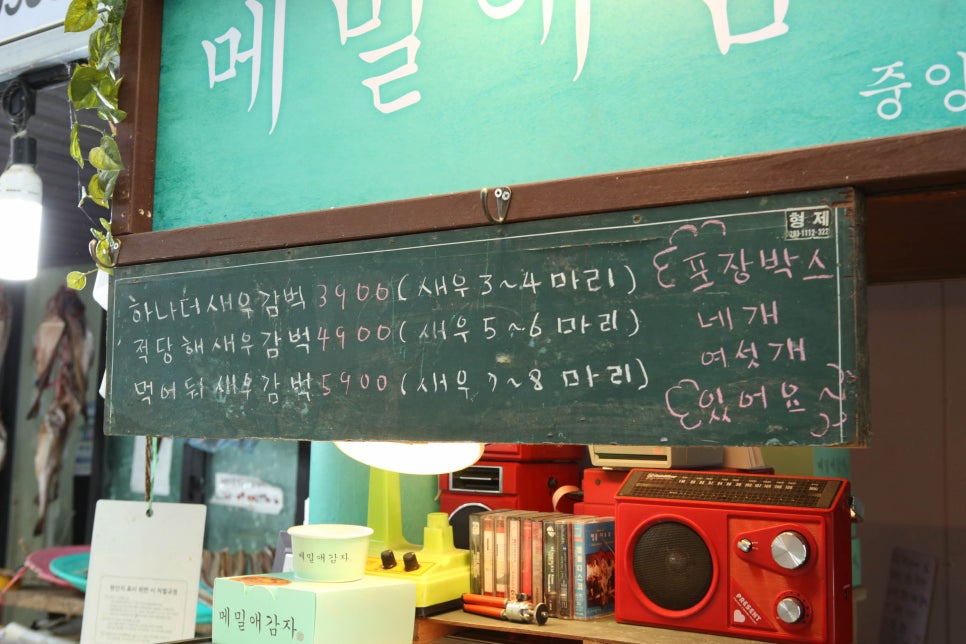 메밀애감
중앙
형제
하나더새우감벅 3900 (새우 3~4 마리)
적당해새우감벅 4900 (새우 5~6 마리)
먹어둬 새우감벅 5900 (새우 7~8 마리)
포장박스
네개
여섯개
있어요
메밀애감자
메밀애감자
PRESENT